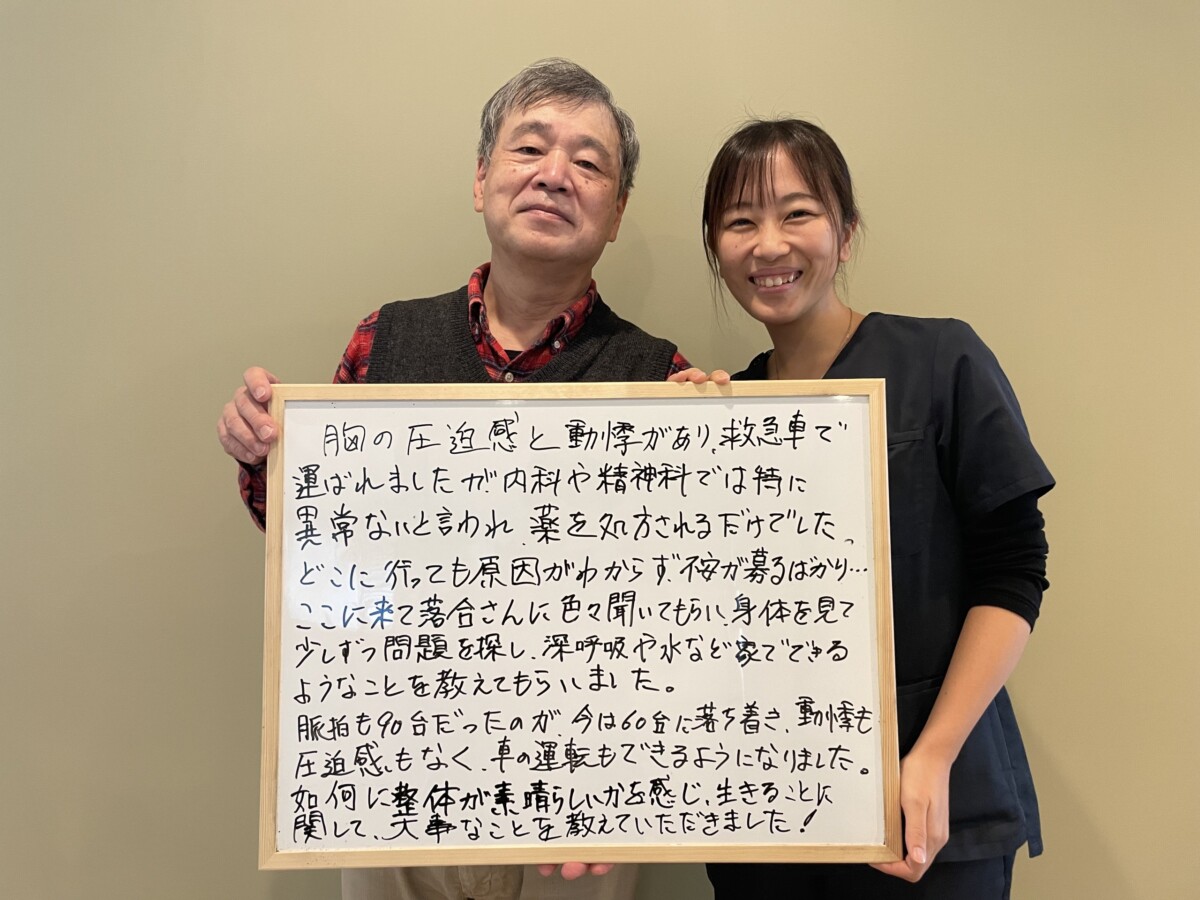 胸の圧迫感と動悸があり、救急車で
運ばれましたが内科や精神科では特に
異常ないと言われ、薬を処方されるだけでした。
どこに行っても原因がわからず、不安が募るばかり…
ここに来て落合さんに色々聞いてもらい、身体を見て
少しずつ問題を探し、深呼吸や水など家でできる
ようなことを教えてもらいました。
脈拍も90台だったのが、今は60台に落ち着き、動悸も
圧迫感もなく、車の運転もできるようになりました。
如何に整体が素晴らしいかを感じ、生きることに
関して、大事なことを教えていただきました!